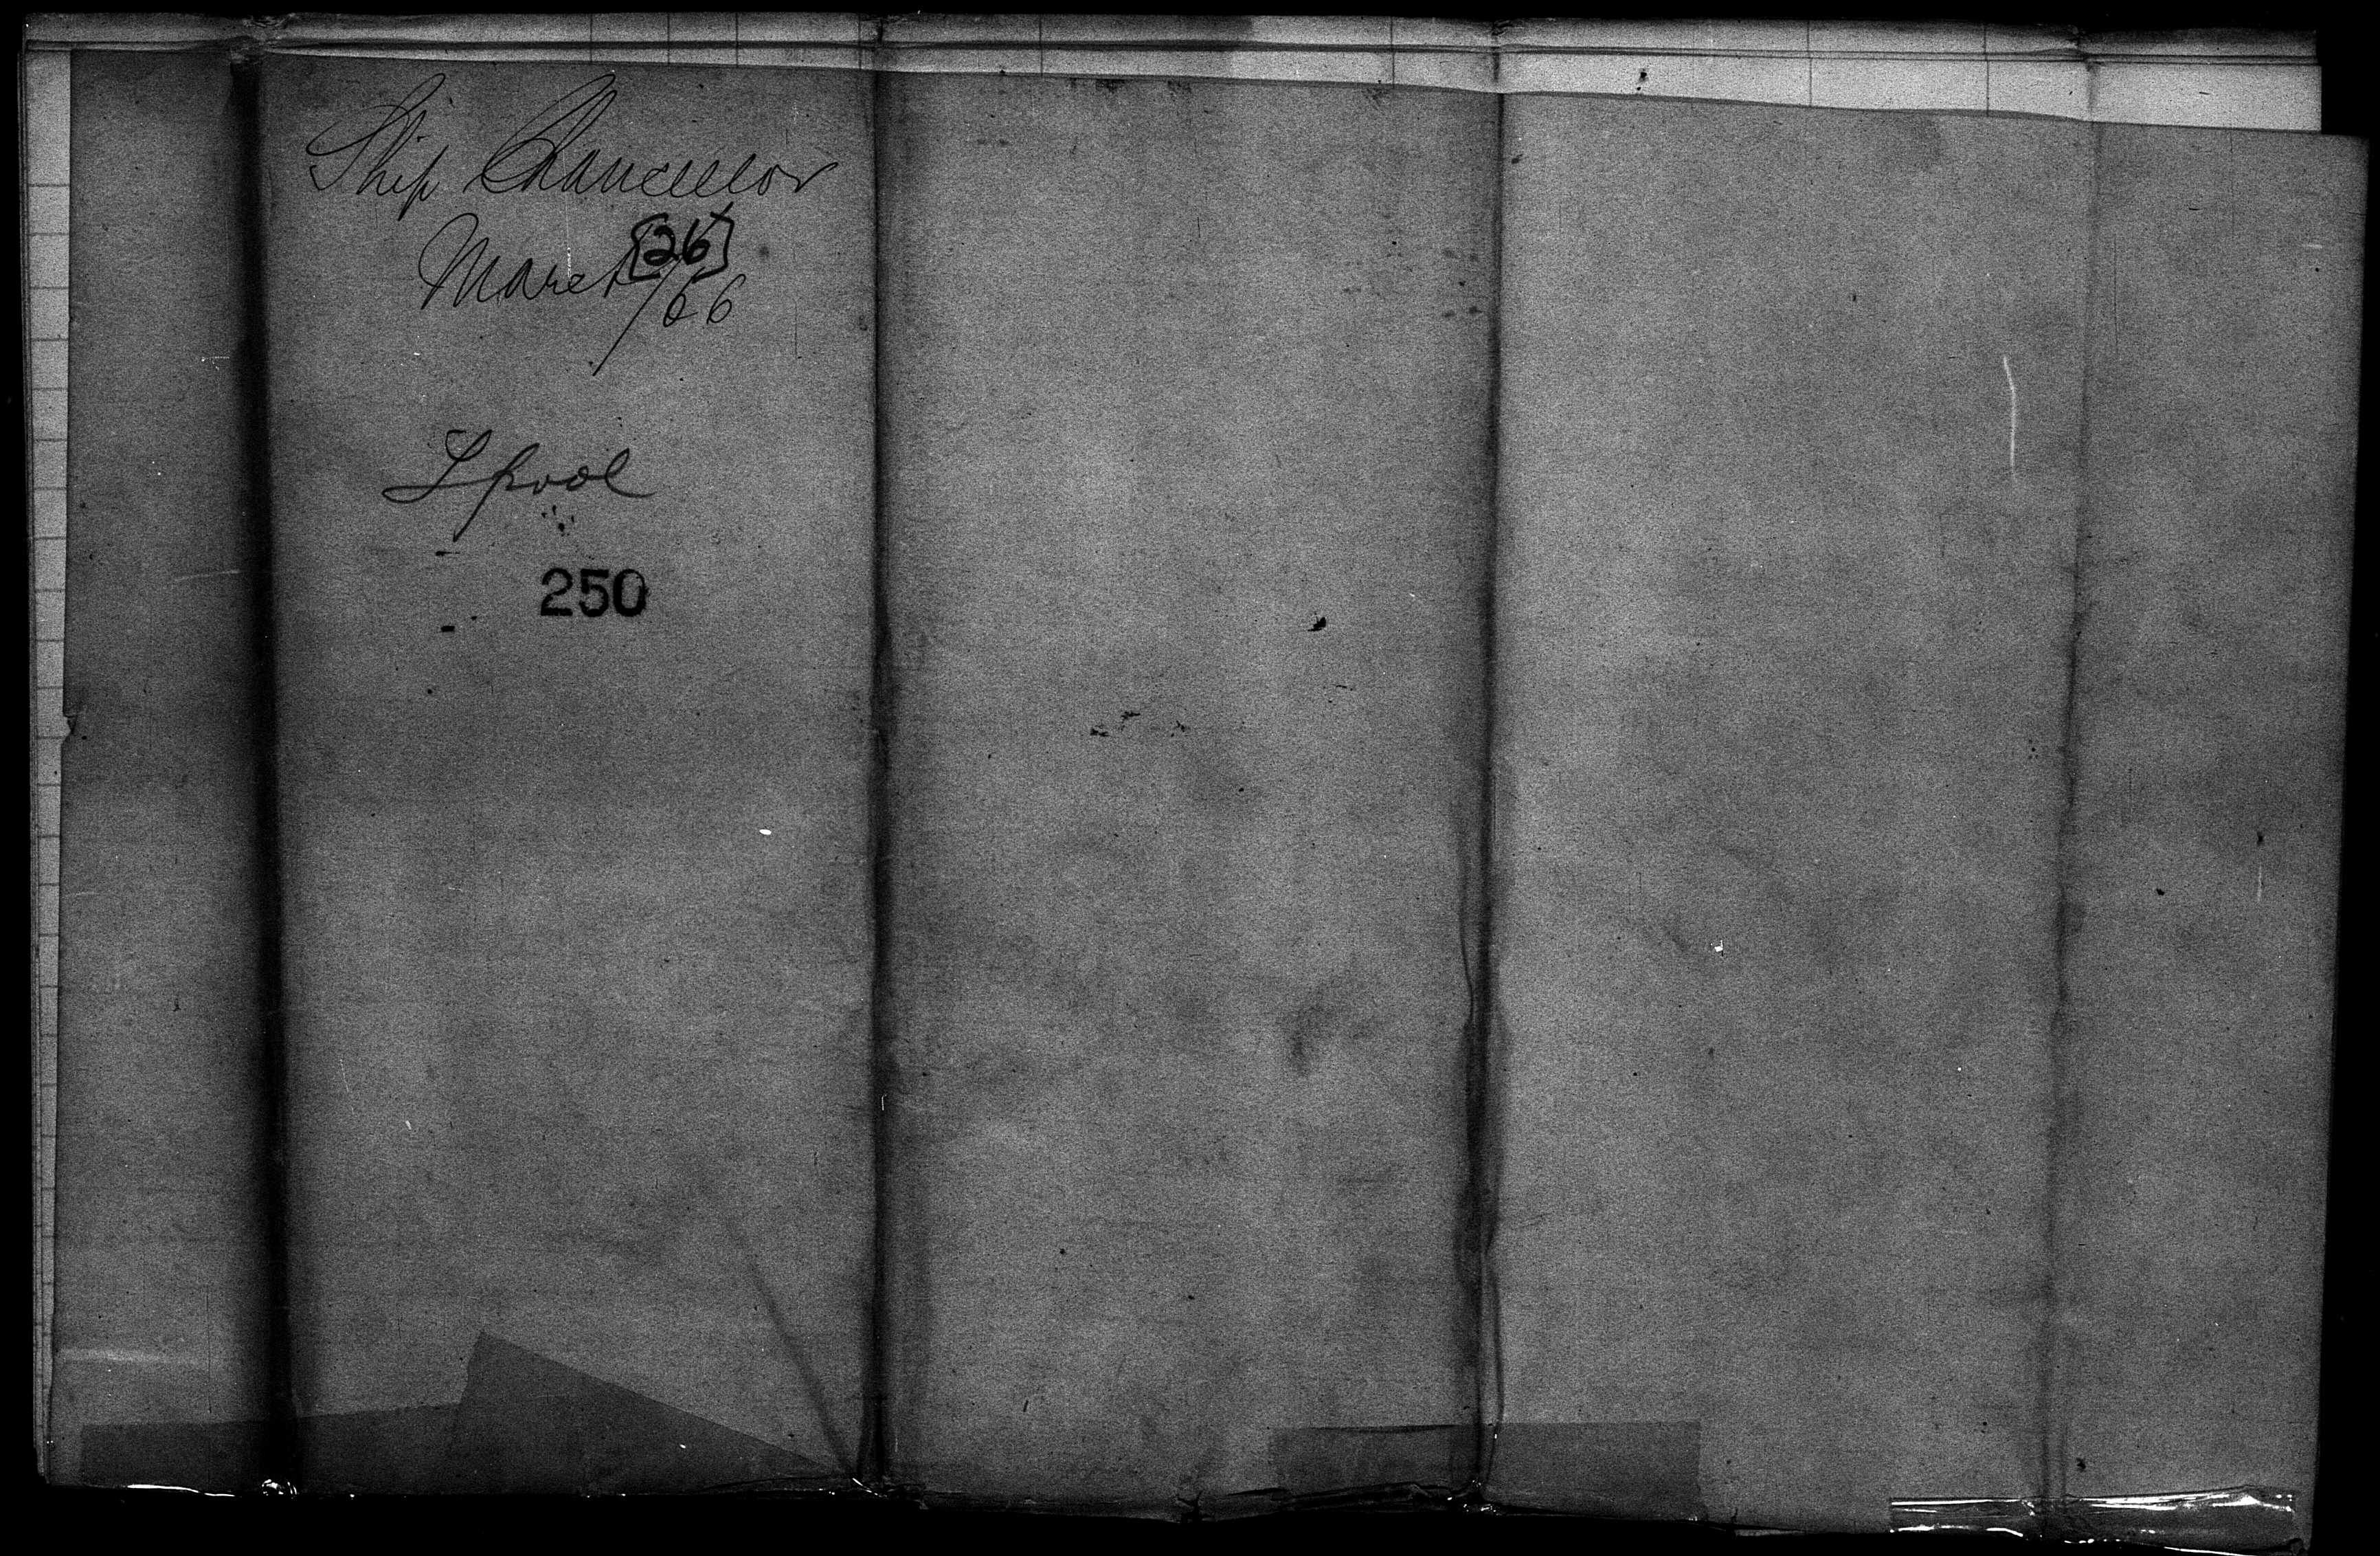 Ship Chancellor
March [26]
/66
Lpool
250